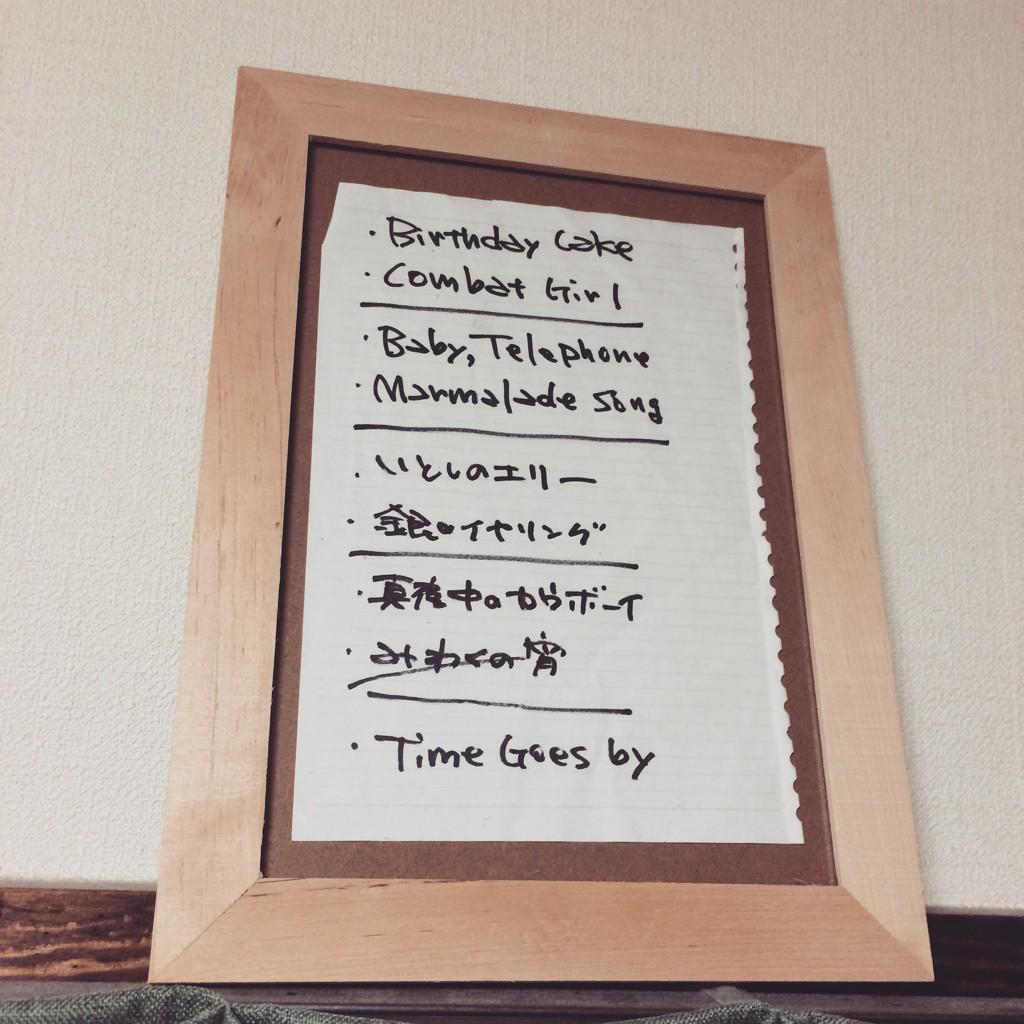 ・Birthday Cake
・Combat Girl
・Baby, Telephone
・Marmalade Song
・いとしのエリー
・銀のイヤリング
・真夜中のカウボーイ
・みわくの宵
・Time Goes by